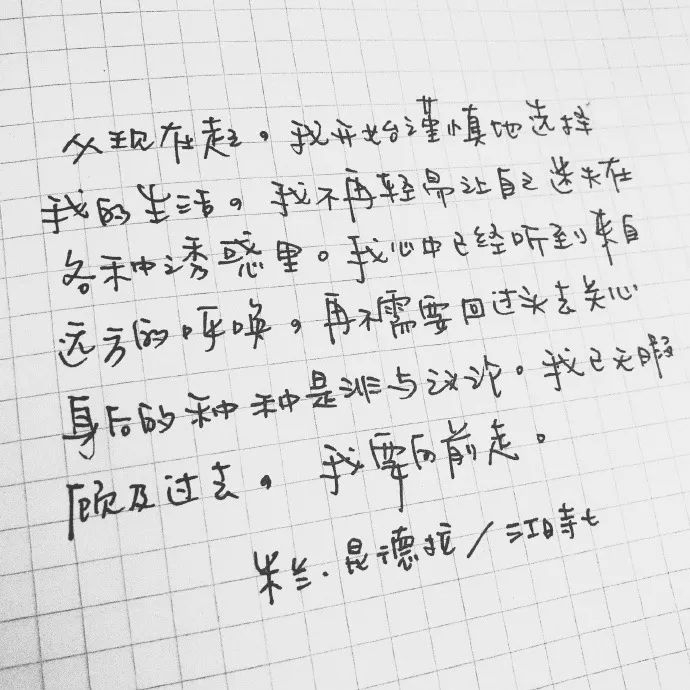 从现在起,我开始谨慎地选择
我的生活,我不再轻易让自己迷失在
各种诱惑里。我心中已经听到来自
远方的呼唤,再不需要回过头去关心
身后的种种是非与议论。我已无暇
顾及过去,我要向前走。
米兰.昆德拉/